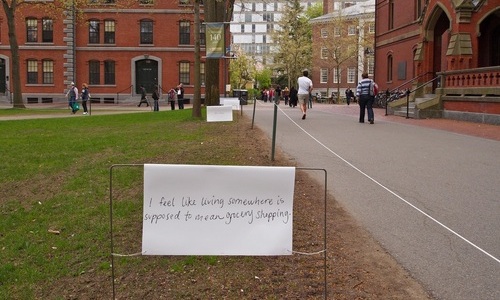 140
I feel like living somewhere is
supposed to mean grocery shopping.